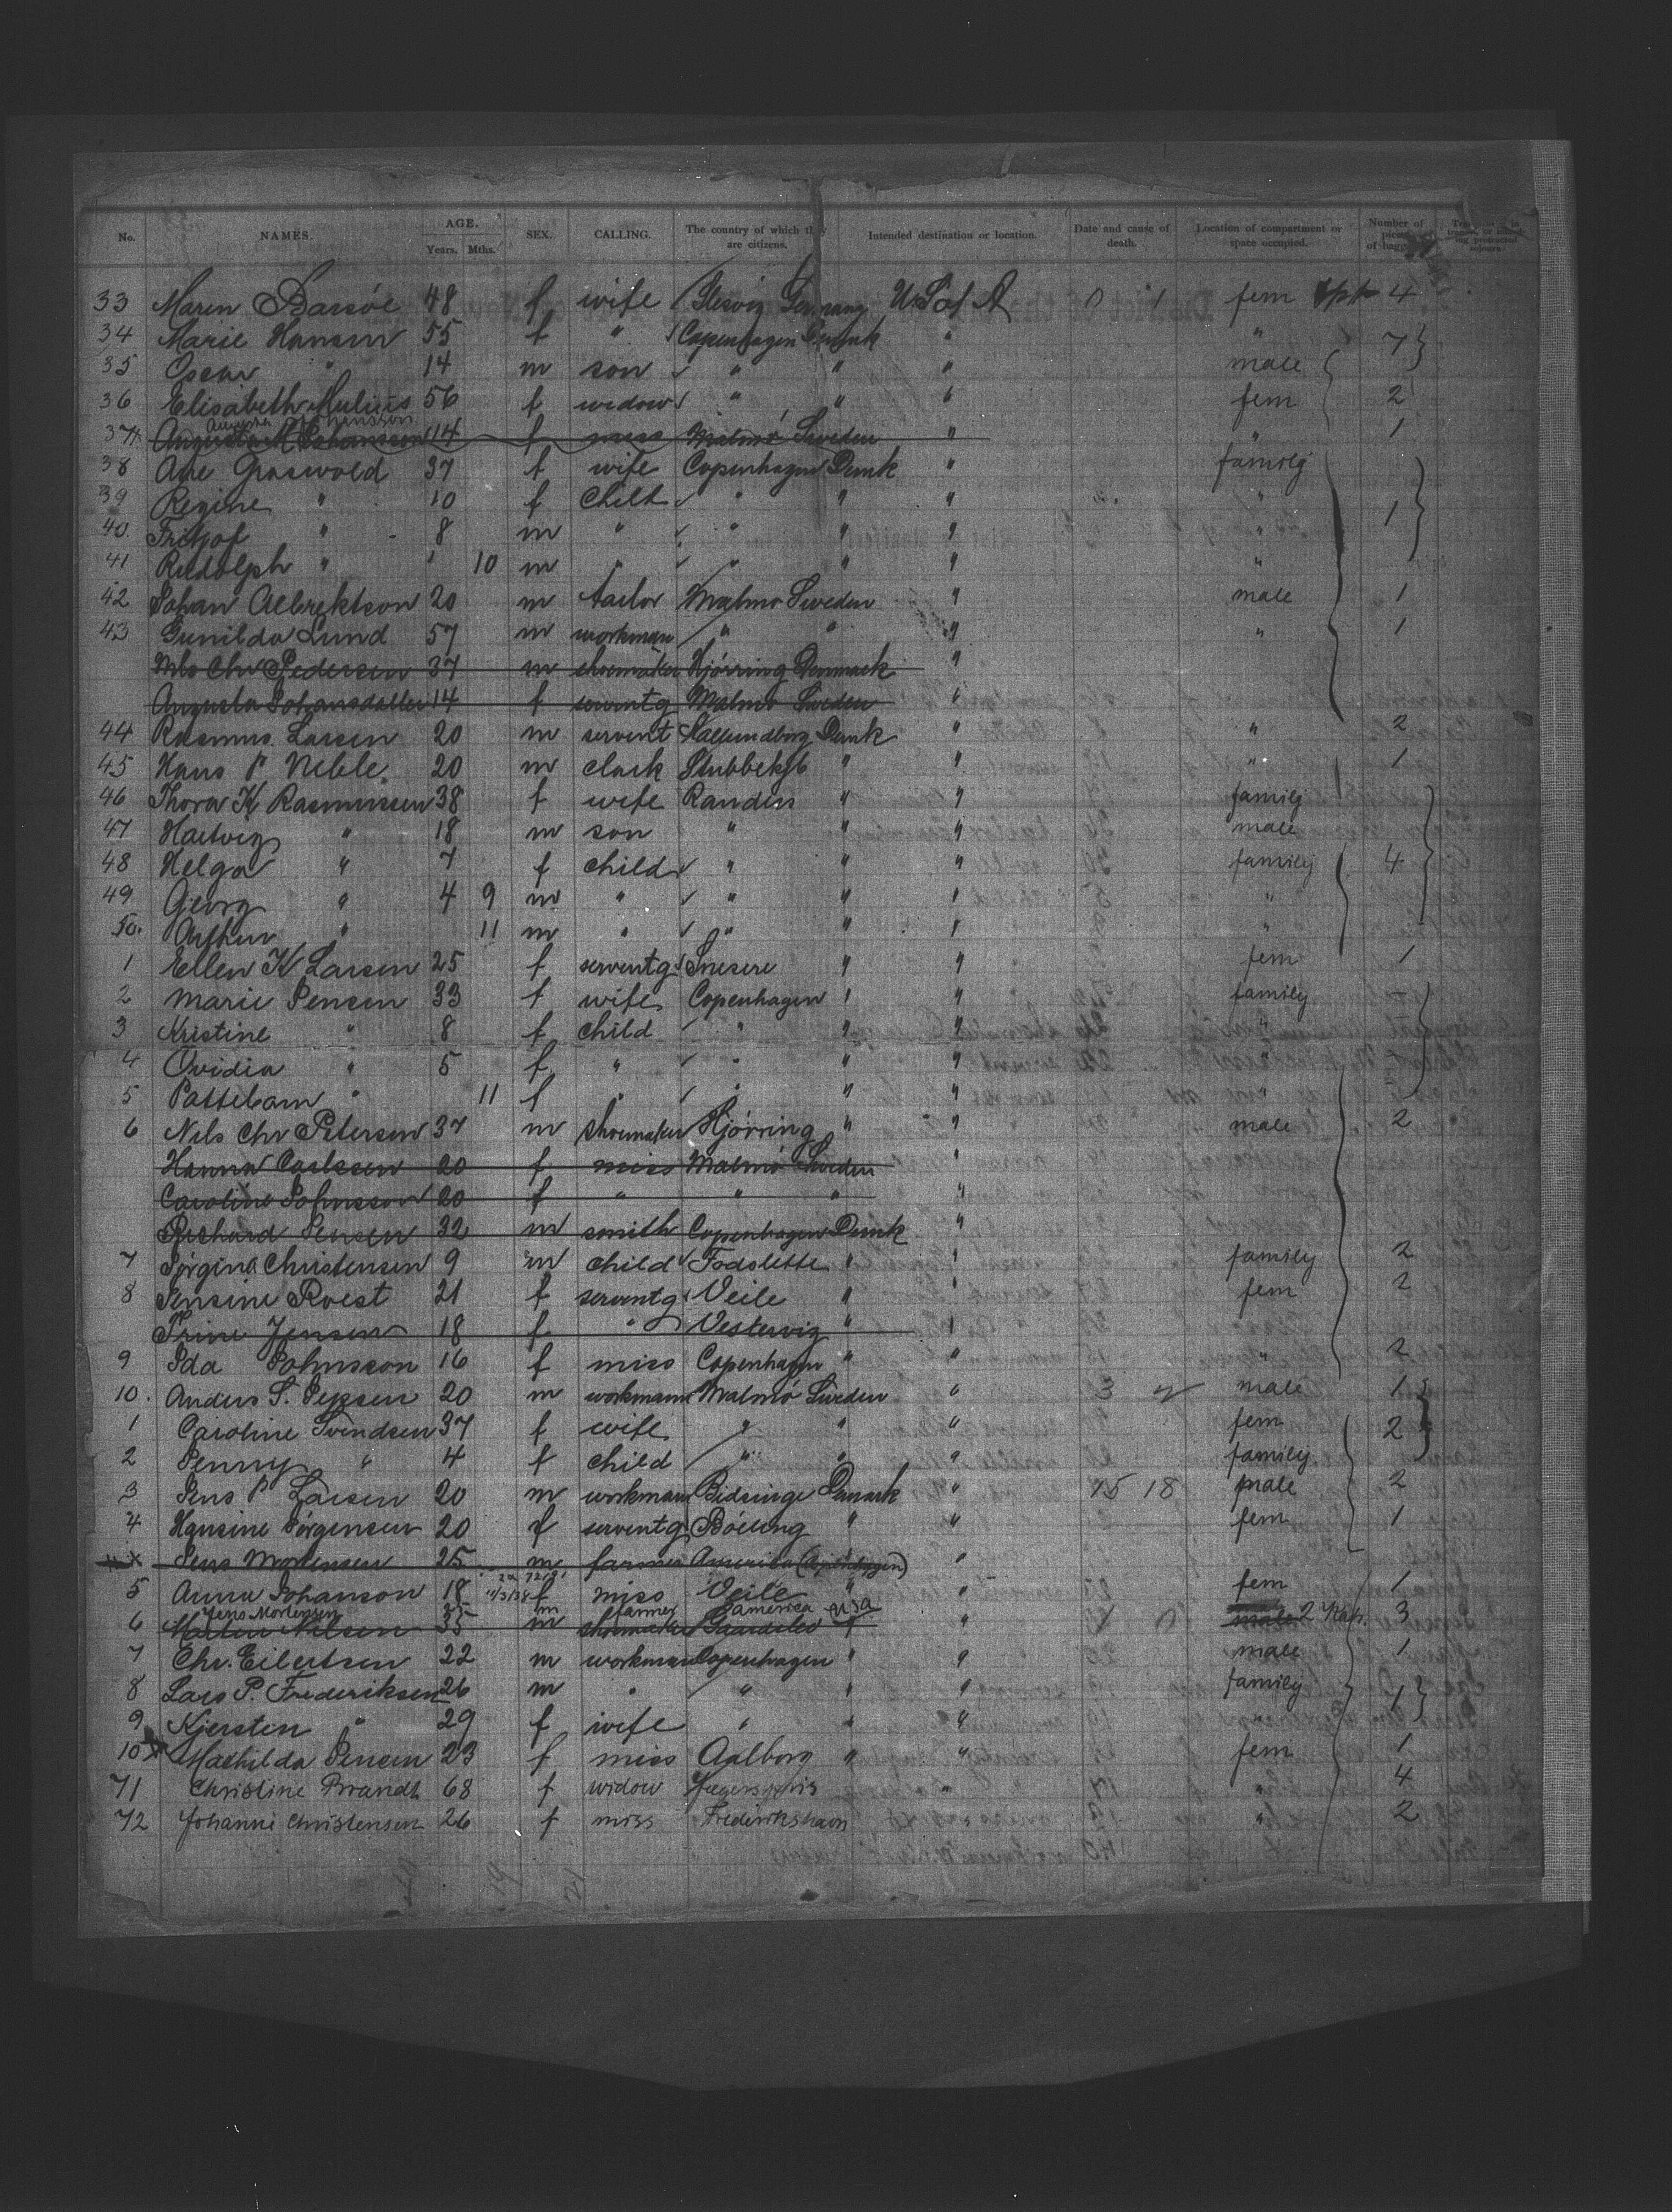 No. NAMES. AGE. Years. Mths. SEX. CALLING. The country of which they are citizens. Intended destination or location. Date and cause of death. Location of compartment or space occupied. Number of pieces of baggage
33 Maren Barsöe 48 f wife Slesvig Germany U.S of A 0 1 fem 4
34 Marie Hansen 55 f " Copenhagen Denmk " " 7
35 Oscar " 14 m son " " " male
36 Elisabeth Mulius 56 f widow " " " fem 2
Augusta Johansson
37 Augusta M Johansson 14 f miss Malmö Sweden " " 1
38 Ane Graswold 37 f wife Copenhagen Denmk " family
39 Regine " 10 f chilt " " " " 1
40 Fritjof " 8 m " " " " "
41 Rudolph " 10 m " " " " "
42 Johan Albrektson 20 m tailor Malmö Sweden " male 1
43 Gunilda Lund 57 m workman " " " " 1
Nils Chr Pedersen 37 m shoemaker Hjörring Denmark "
Augusta Johansdatter 14 f serventg Malmö Sweden "
44 Rasmus Larsen 20 m servent Kallundborg Denmk " " 2
45 Hans P Neble 20 m clark Stubbekjb " " " 1
46 Thora K Rasmussen 38 f wife Randers " " family
47 Hartvig " 18 m son " " " male
48 Helga " 7 f child " " " family 4
49 Georg " 4 9 m " " " " "
50. Arthur " 11 m " " " " "
1 Ellen K Larsen 25 f serventg Snesere " " fem 1
2 Marie Jensen 33 f wife Copenhagen " " family
3 Kristine " 8 f child " " " "
4 Ovidia " 5 f " " " " "
5 Pattebarn " 11 f " " " " "
6 Nils Chr Petersen 37 m shoemaker Hjörring " " male 2
Hanna Carlsson 20 f miss Malmö Sweden "
Caroline Johnsson 20 f " " " "
Richard Jensen 32 m smith Copenhagen Denmk "
7 Jörgine Christensen 9 m child Fodslette " " family 2
8 Jensine Roest 21 f serventg Veile " " fem 2
Trine Jensen 18 f " Vestervig " "
9 Ida Johnsson 16 f miss Copenhagen " " " 2
10. Anders S. Jeppsen 20 m workmann Malmö Sweden " 3 male 1
1 Caroline Svendsen 37 f wife " " " fem 2
2 Jenny " 4 f child " " " family
3 Jens P Larsen 20 m workman Bidsinge Denmark " 15 18 male 2
4 Hansine Jörgensen 20 f serventg Böelling " " fem 1
Jens Mortensen 25 m farmer America (Copenhagen) "
5 Anna Johanson 18 f miss Veile " " fem 1
Jens Mortensen m farmer America USA
6 Nilsen 35 m shoemaker " " 3
7 Chr. Eilertsen 22 m workman Copenhagen " " male 1
8 Lars P. Frederiksen 26 m " " " " family 1
9 Kjersten " 29 f wife " " "
10 Mathilda Jensen 23 f miss Aalborg " " fem 1
71 Christine Brandt 68 f widow Jægerspris " " 4
72 Johanne Christensen 26 f miss Frederikshavn " " 2